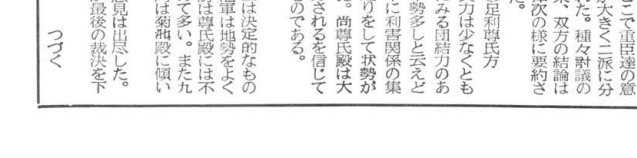 こで重臣達の意
が大きく二派に分
れた。種々討議の
末、双方の結論は
次の様に要約さ
た。
足利尊氏方
力は少なくとも
みる団結力のあ
勢多しと云えど
に利害関係の集
りをして状勢が
。尚尊氏殿は大
されるを信じて
ものである。
は決定的なもの
軍は地勢をよく
は尊氏殿には不
て多い。また九
は菊池殿に傾い
意見は出尽した。
最後の裁決を下
つづく